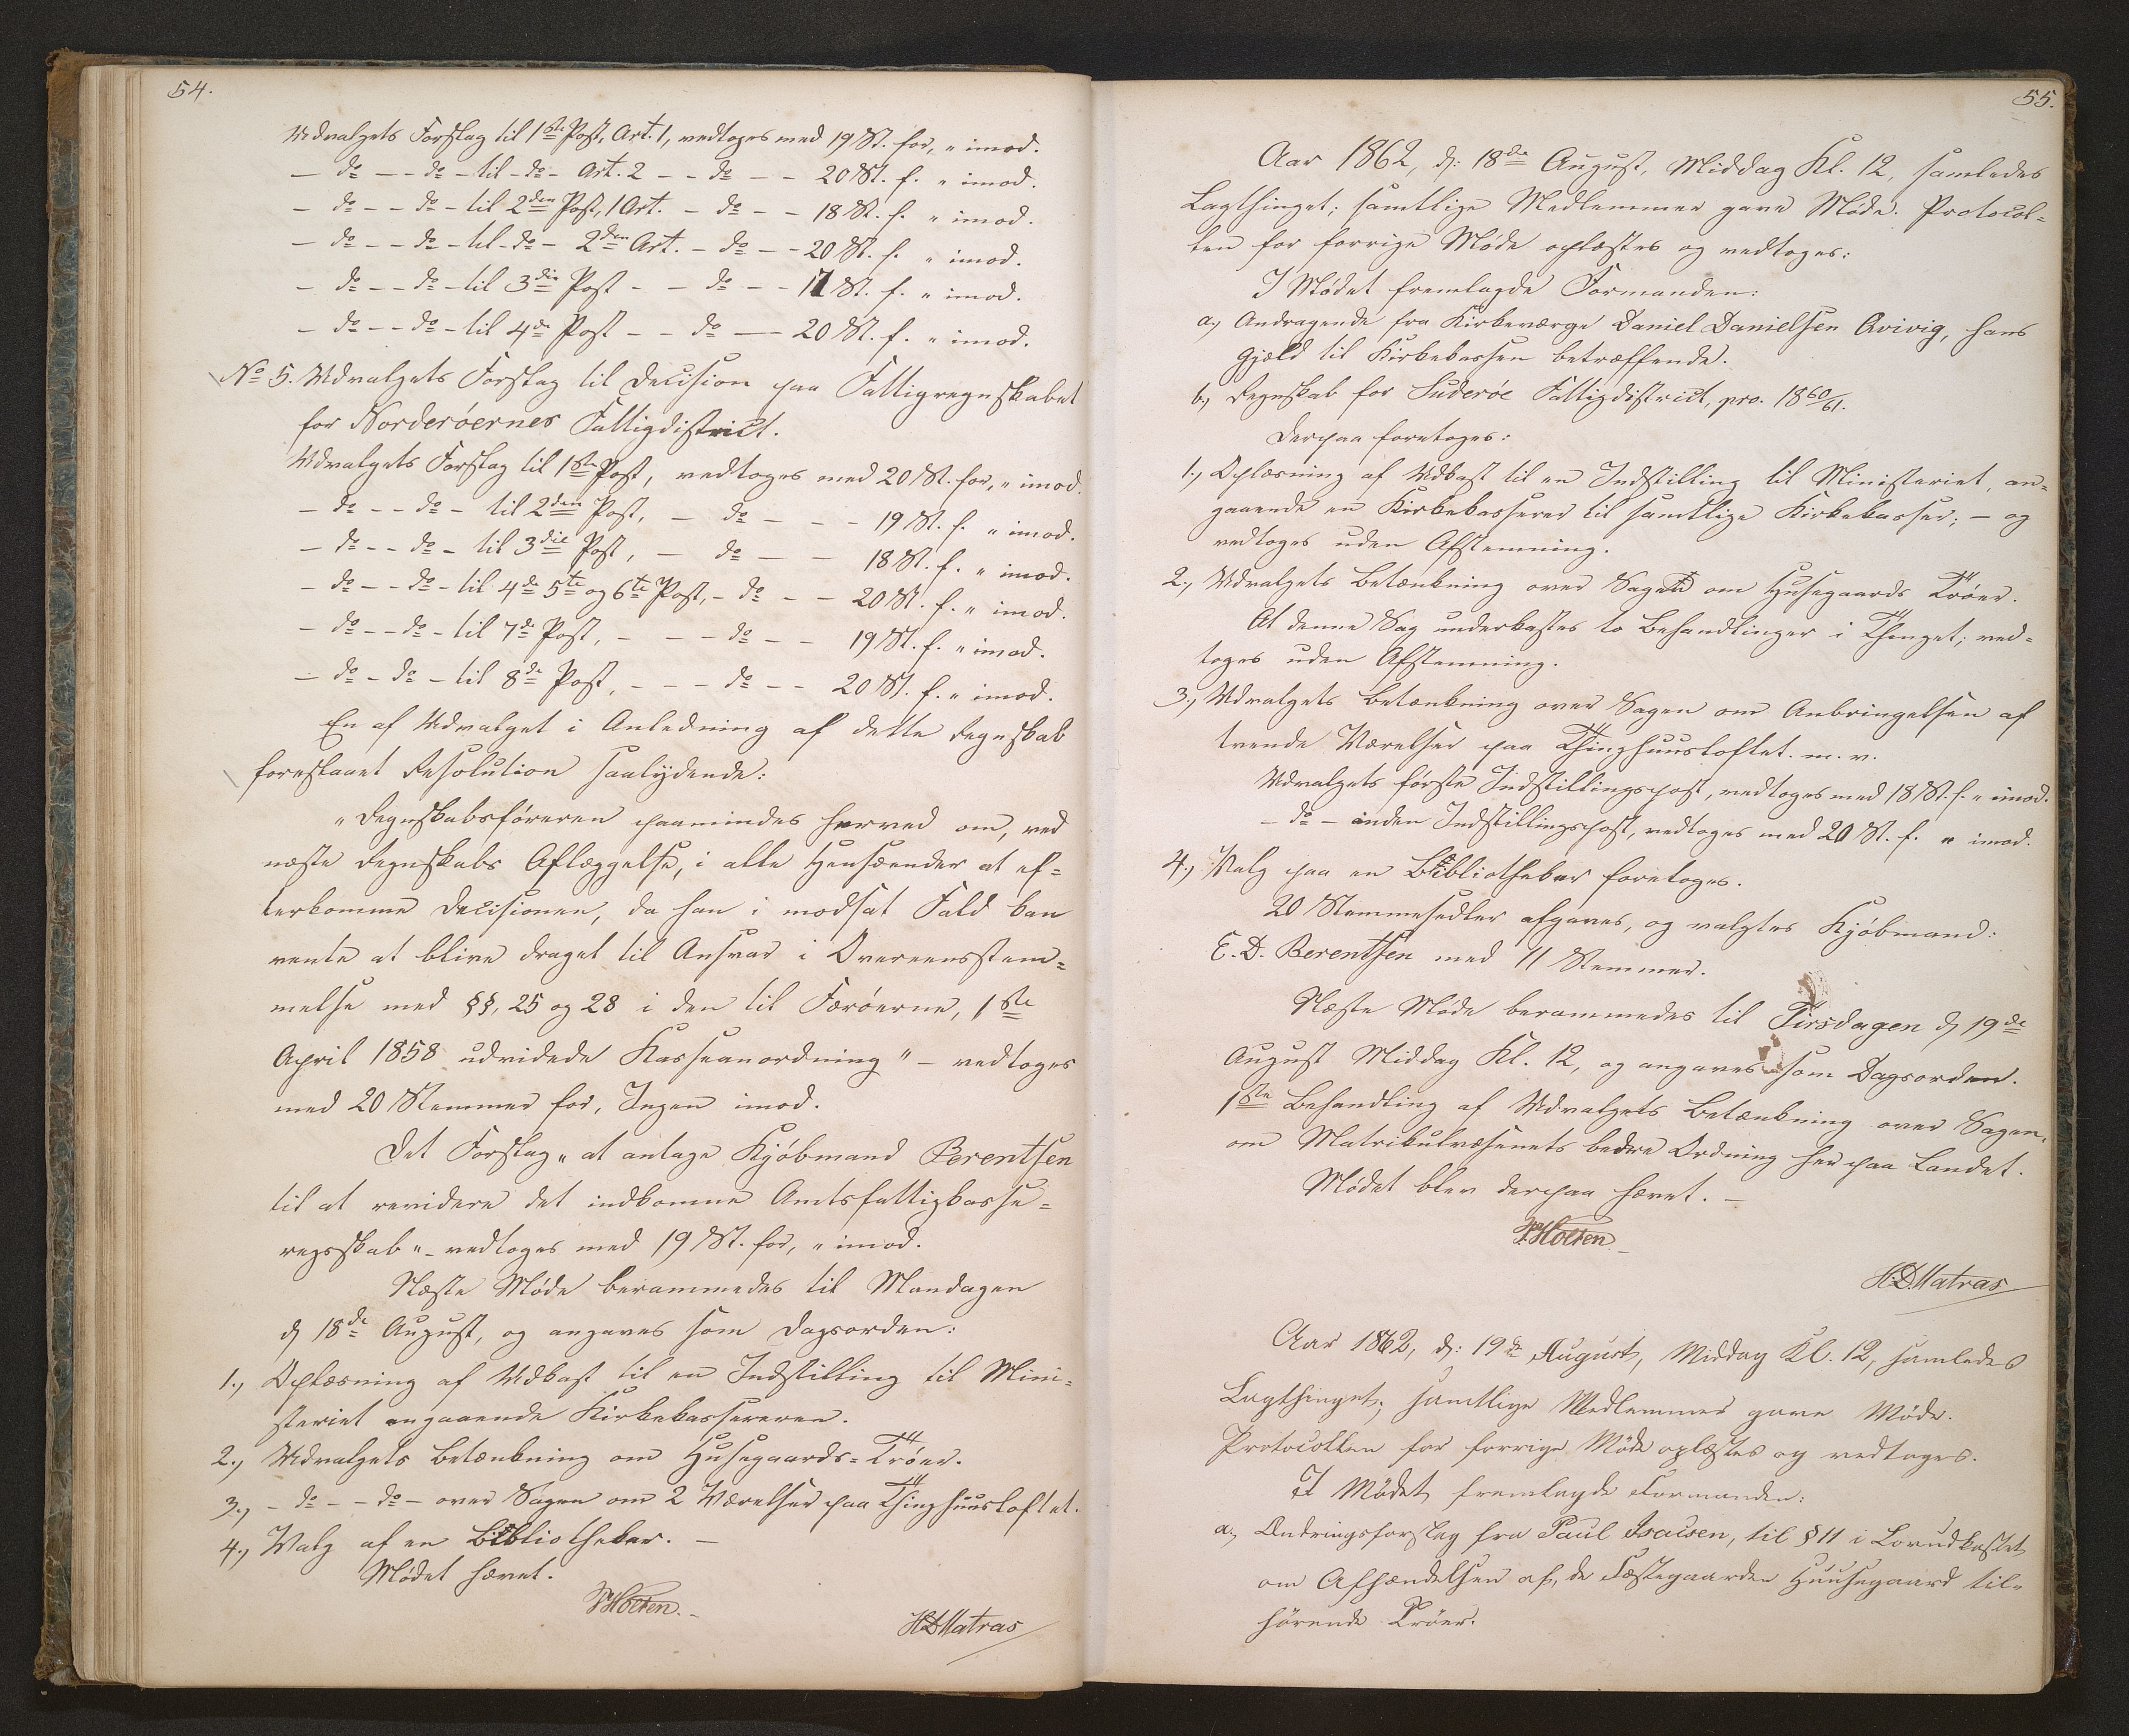 54.
Udvalgets Forslag til 1ste Post, Art. 1, vedtoges med 19 St. for, " imod.
— do — — do — til — do — Art. 2 — — do — — 20 St. f. " imod.
— do — — do — til 2den Post, 1 Art. — do — — 18 St. f. " imod.
— do — — do — til — do — 2den Art. — do — — 20 St. f. " imod.
— do — — do — til 3die Post — — do — — 17 St. f. " imod.
— do — — do — til 4de Post — — do — — 20 St. f. " imod.
No 5. Udvalgets Forslag til Decision paa Fattigregnskabet
for Norderöernes Fattigdistrict.
Udvalgets Forslag til 1ste Post, vedtoges med 20 St. for, " imod.
— do — — do — til 2den Post, — do — — — 19 St. f. " imod.
— do — — do — til 3die Post, — do — — 18 St. f. " imod.
— do — — do — til 4de 5te og 6te Post, — do — — 20 St. f. " imod.
— do — — do — til 7de Post, — — — do — — 19 St. f. " imod.
— do — do — til 8de Post, — — — do — — 20 St. f. " imod.
En af Udvalget i Anledning af dette Regnskab
foreslaaet Resolution saalydende:
"Regnskabsføreren paamindes herved om, ved
næste Regnskabs Aflæggelse, i alle Henseender at ef=
terkomme Decisionen, da han i modsat Fald kan
vente at blive draget til Ansvar i Overeensstem=
melse med §§, 25 og 28 i den til Færöerne, 1ste
April 1858 udvidede Kasseanordning" — vedtoges
med 20 Stemmer for, Ingen imod.
Det Forslag "at antage Kjöbmand Berentsen
til at revidere det indkomne Amtsfattigkasse=
regsskab" — vedtoges med 19 St. for, " imod.
Næste Möde berammedes til Mandagen
d 18de August, og angaves som Dagsorden:
1., Oplæsning af Udkast til en Indstilling til Mini=
steriet angaaende Kirkekassereren.
2., Udvalgets Betænkning om Husegaards=Tröer.
3., — do — — do — over Sagen om 2 Værelser paa Thinghuusloftet.
4., Valg af en Bibliothekar. —
Mödet hævet.
PHolten. —
HDMatras
55.
Aar 1862, d: 18de August, Middag Kl. 12, samledes
Lagthinget; samtlige Medlemmer gave Möde. Protocol=
len for forrige Möde oplæstes og vedtoges:
I Mödet fremlagde Formanden:
a., Andragende fra Kirkeværge Daniel Danielsen Qvivig, hans
Gjæld til Kirkekassen betræffende.
b., Regnskab for Suderöe Fattigdistrict, pro. 1860/61.
Derpaa foretoges:
1., Oplæsning af Udkast til en Indstilling til Ministeriet, an=
gaaende en Kirkekasserer til samtlige Kirkekasser; — og
vedtoges uden Afstemning.
2., Udvalgets Betænkning over Sagen om Husegaards Tröer.
At denne Sag underkastes to Behandlinger i Thinget; ved=
toges uden Afstemning.
3., Udvalgets Betænkning over Sagen om Anbringelsen af
tvende Værelser paa Thinghuusloftet. m. v.
Udvalgets förste Indstillingspost, vedtoges med 18 St. f. " imod.
— do — anden Indstillingspost, vedtoges med 20 St. f. " imod.
4., Valg paa en Bibliothekar foretoges.
20 Stemmesedler afgaves, og valgtes Kjöbmand:
E. D. Berentsen med 11 Stemmer.
Næste Möde berammedes til Tirsdagen d 19de
August Middag Kl. 12, og angaves som Dagsorden.
1ste Behandling af Udvalgets Betænkning over Sagen,
om Matrikulvæsenets bedre Ordning her paa Landet.
Mödet blev derpaa hævet. —
PHolten
HDMatras
Aar 1862, d: 19de August, Middag Kl. 12, samledes
Lagthinget; samtlige Medlemmer gave Möde.
Protocollen for forrige Möde oplæstes og vedtoges.
I Mödet fremlagde Formanden:
a., Ændringsforslag fra Paul Isacsen, til § 11 i Lovudkastet
om Afhændelsen af, de Fæstegaarden Huusegaard til=
hörende Tröer.